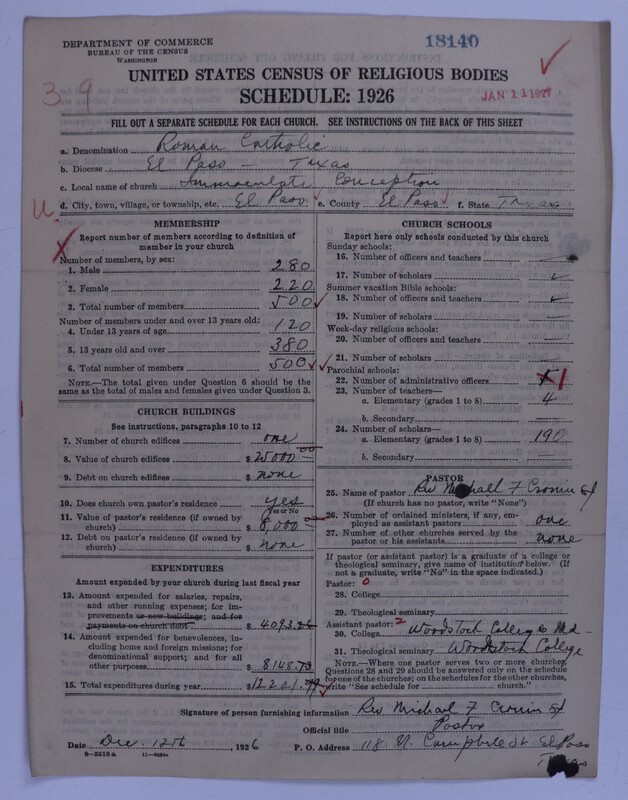 DEPARTMENT OF COMMERCE
BUREAU OF THE CENSUS
WASHINGTON
18140
3 9
UNITED STATES CENSUS OF RELIGIOUS BODIES
SCHEDULE: 1926
JAN 11 1927
FILL OUT A SEPARATE SCHEDULE FOR EACH CHURCH. SEE INSTRUCTIONS ON THE BACK OF THIS SHEET
a. Denomination Roman Catholic
b. Diocese El Paso - Texas
c. Local name of church Immaculate Conception
d. City, town, village, or township, etc. El Paso e. County El Paso f. State Texas
U.
MEMBERSHIP
Report number of members according to definition of
member in your church
Number of members, by sex:
1. Male 280
2. Female 220
3. Total number of members 500
Number of members under and over 13 years old:
4. Under 13 years of age 120
5. 13 years old and over 380
6. Total number of members 500
NOTE.—The total given under Question 6 should be
same as the total of males and females given under Question 3.
CHURCH BUILDINGS
See instructions, paragraphs 10 to 12
7. Number of church edifices one
8. Value of church edifices $ 25000 00
9. Debt on church edifices $ none
10. Does church own pastor's residence yes
Yes or No
11. Value of pastor's residence (if owned by
church) $ 8000
12. Debt on pastor's residence (if owned by
church) $ none
EXPENDITURES
Amount expended by your church during last fiscal year
13. Amount expended for salaries, repairs,
and other running expenses; for im-
provements or new buildings; and for
payments on church debt $ 4093.26
14. Amount expended for benevolences, in-
cluding home and foreign missions; for
denominational support; and for all
other purposes $ 8148.73
15. Total expenditures during year $ 12241.99
CHURCH SCHOOLS
Report here only schools conducted by this church
Sunday schools:
16. Number of officers and teachers
17. Number of scholars
Summer vacation Bible schools:
18. Number of officers and teachers
19. Number of scholars
Week-day religious schools:
20. Number of officers and teachers
21. Number of scholars
Parochial schools:
22. Number of administrative officers 1
23. Number of teachers—
a. Elementary (grades 1 to 8) 4
b. Secondary
24. Number of scholars—
a. Elementary (grades 1 to 8) 190
b. Secondary
PASTOR
25. Name of pastor Rev Michael F Cronin SJ
(If church has no pastor, write "None")
26. Number of ordained ministers, if any, em-
ployed as assistant pastors one
27. Number of other churches served by the
pastor or his assistants none
If pastor (or assistant pastor) is a graduate of a college or
theological seminary, give name of institution below. (If
not a graduate, write "No" in the space indicated.)
Pastor: 0
28. College
29. Theological seminary
Assistant pastor: 2
30. College Woodstock College Md-
31. Theological seminary Woodstock College
NOTE.—Where one pastor serves two or more churches,
Questions 28 and 29 should be answered only on the schedule
for one of the churches; on the schedules for the other churches,
write "See schedule for church."
Signature of person furnishing information Rev Michael F Cronin SJ
Official title Pastor
Date Dec. 12th, 1926 P. O. Address 118 N. Campbell St El Paso
Texas
8-5518 a